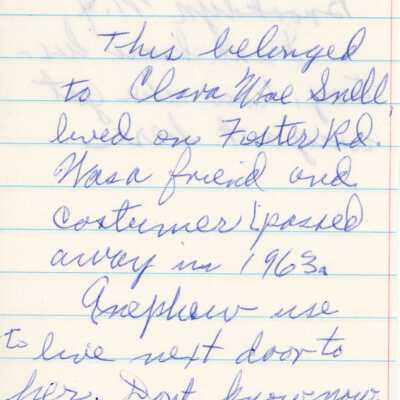 This belonged
to Clara Mae Snell,
lived on Foster Rd.
Was a friend and
costumer (passed
away in 1963.
A nephew use
to live next door to
her. Dont know now